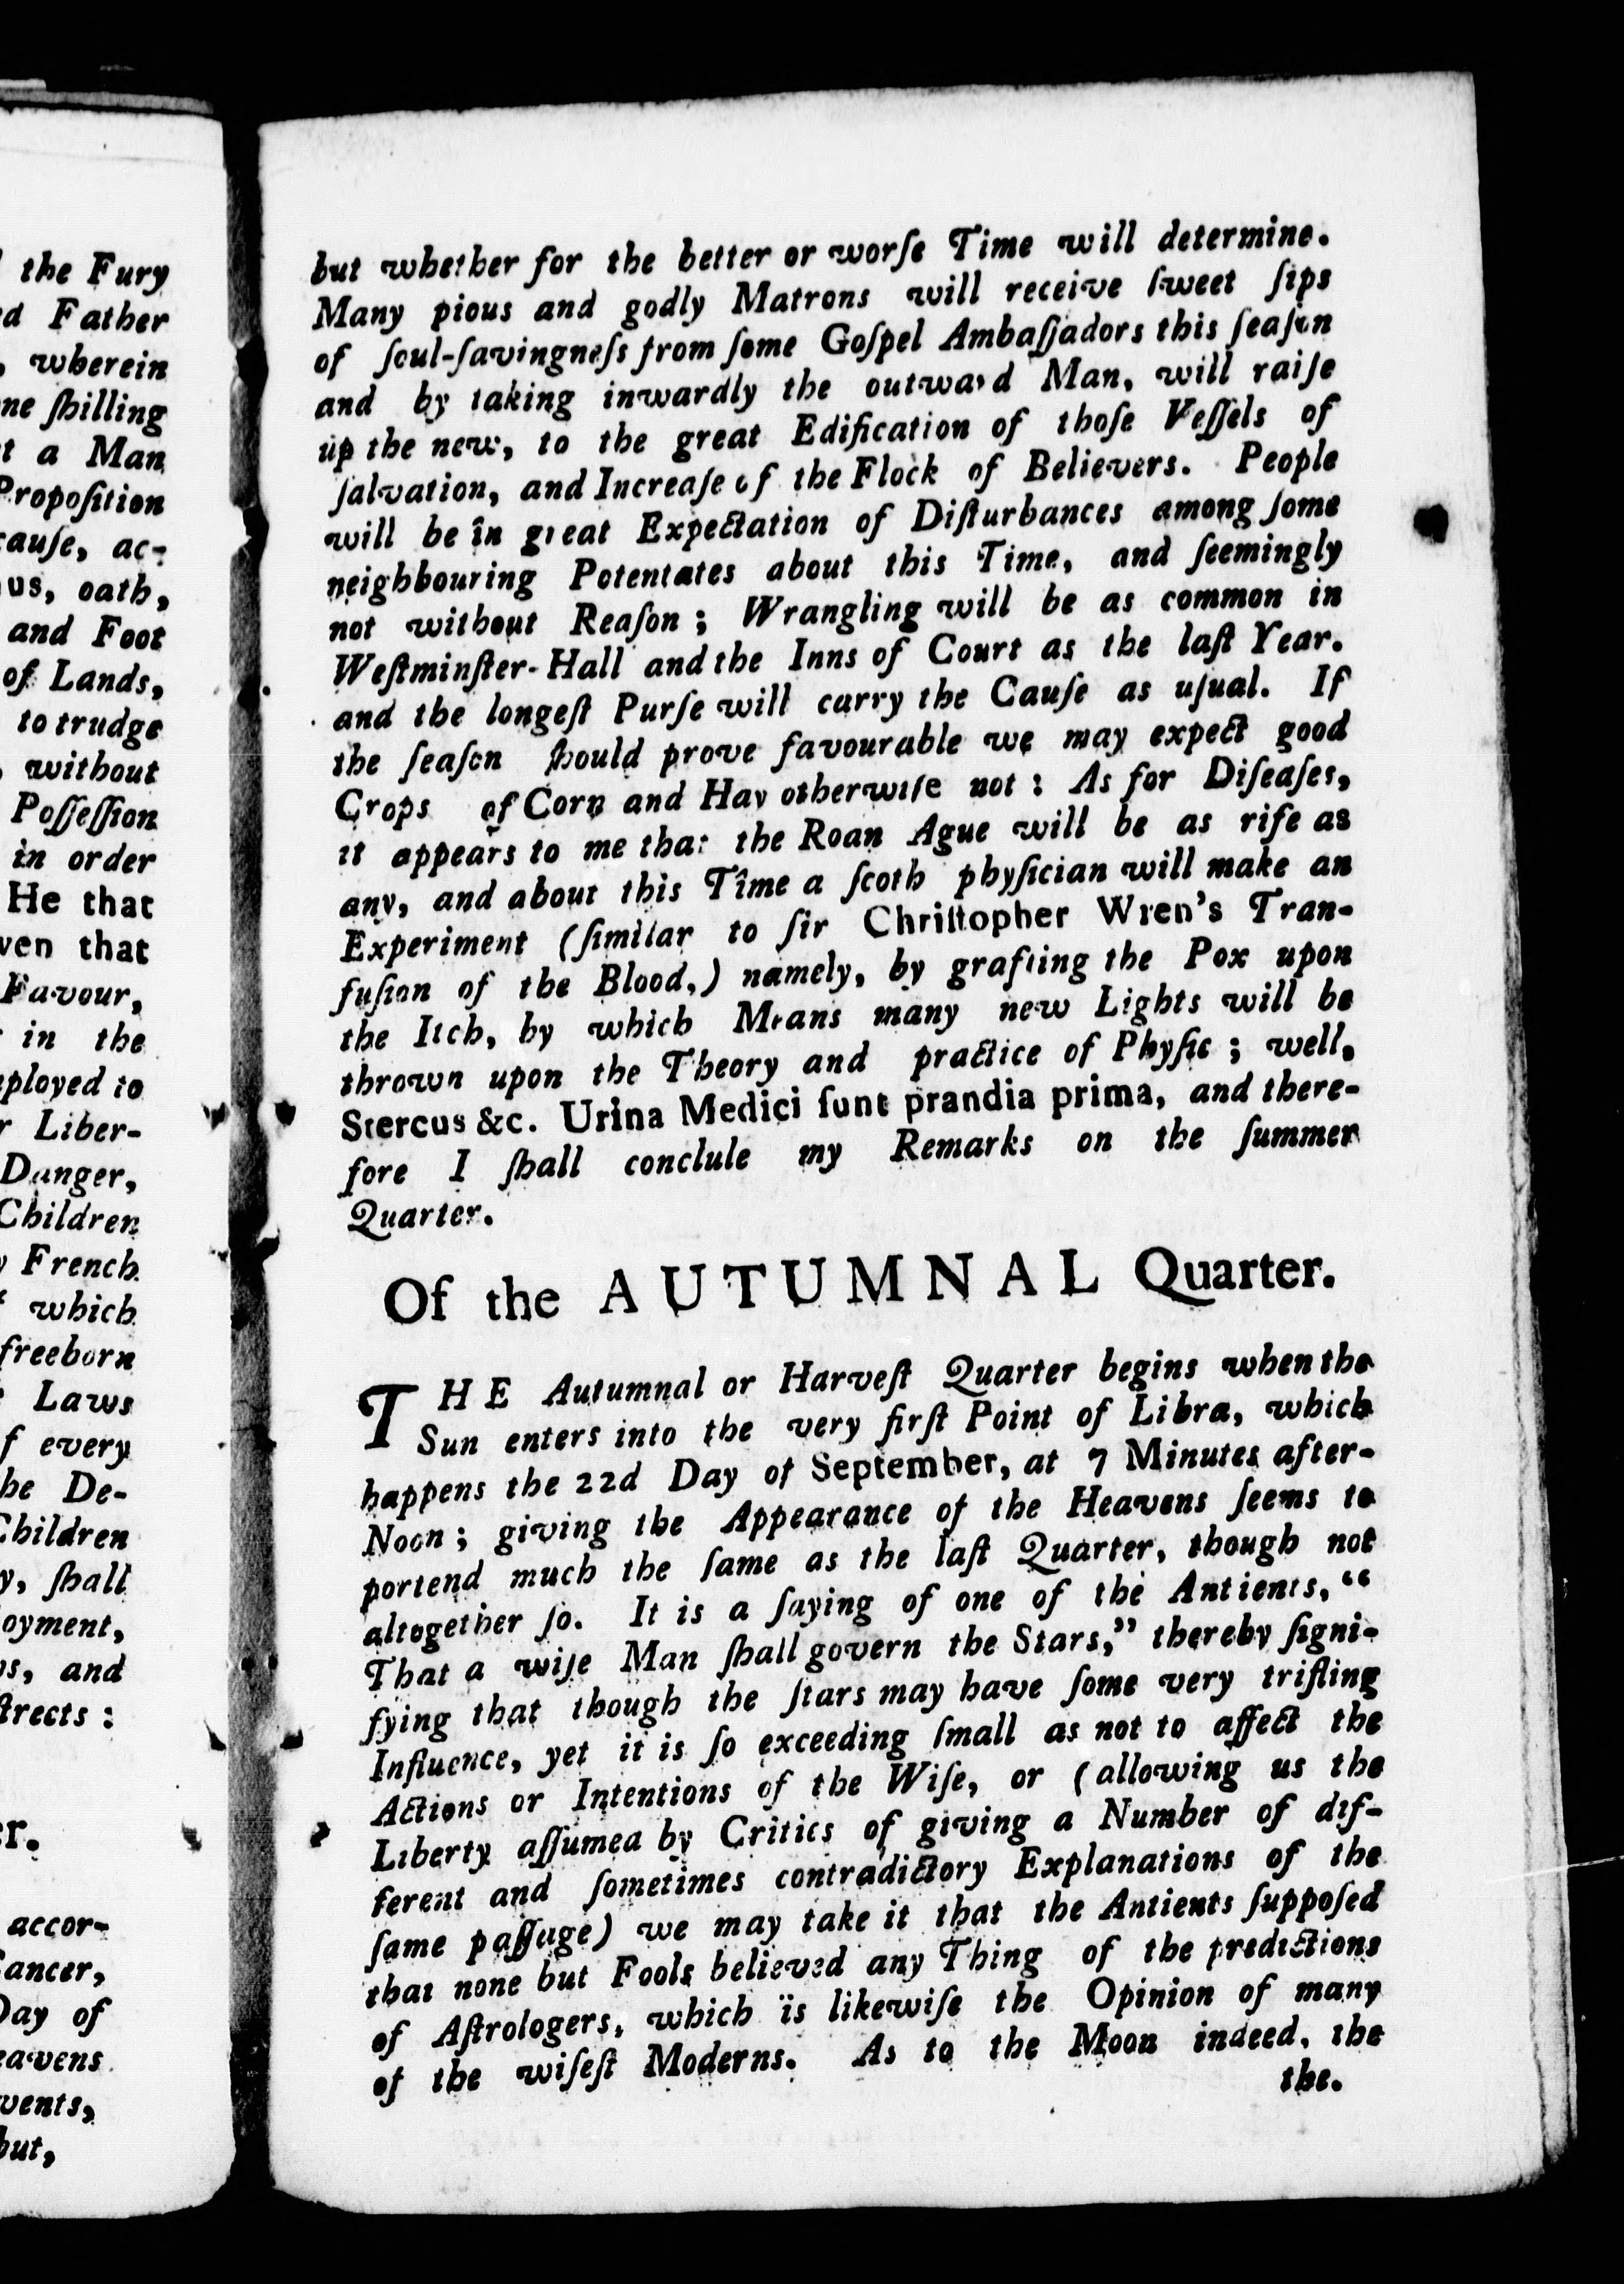 the Fury
d Father
, wherein
ne ſhilling
t a Man
Propoſition
cauſe, ac-
us, oath,
and Foot
of Lands,
to trudge
, without
Poſſeſſion
in order
He that
ven that
Favour,
in the
ployed to
r Liber-
Danger,
Children
y French
which
freeborn
Laws
f every
he De-
Children
y, ſhall
loyment,
s, and
ſtrects :
er.
accor-
Cancer,
Day of
eavens
vents,
but,
but whether for the better or worſe Time will determine.
Many pious and godly Matrons will receive ſweet ſips
of ſoul-ſavingneſs from ſome Goſpel Ambaſſadors this ſeaſon
and by taking inwardly the outward Man, will raiſe
up the new, to the great Edification of thoſe Veſſels of
ſalvation, and Increaſe of the Flock of Believers. People
will be în great Expectation of Diſturbances among ſome
neighbouring Potentates about this Time, and ſeemingly
not without Reaſon ; Wrangling will be as common in
Weſtminſter-Hall and the Inns of Court as the laſt Year.
and the longeſt Purſe will carry the Cauſe as uſual. If
the ſeaſon ſhould prove favourable we may expect good
Crops of Corn and Hay otherwiſe not : As for Diſeaſes,
it appears to me that the Roan Ague will be as rife as
any, and about this Tîme a ſcoth phyſician will make an
Experiment (ſimilar to ſir Chriſtopher Wren's Tran-
fuſion of the Blood,) namely, by grafting the Pox upon
the Itch, by which Means many new Lights will be
thrown upon the Theory and practice of Phyſic ; well,
Stercus &c. Urina Medici ſunt prandia prima, and there-
fore I ſhall conclule my Remarks on the ſummer
Quarter.
Of the AUTUMNAL Quarter.
THE Autumnal or Harveſt Quarter begins when the
Sun enters into the very firſt Point of Libra, which
happens the 22d Day of September, at 7 Minutes after-
Noon ; giving the Appearance of the Heavens ſeems to
portend much the ſame as the laſt Quarter, though not
altogether ſo. It is a ſaying of one of the Antients, “
That a wiſe Man ſhall govern the Stars,” thereby ſigni-
fying that though the ſtars may have ſome very trifling
Influence, yet it is ſo exceeding ſmall as not to affect the
Actions or Intentions of the Wiſe, or (allowing us the
Liberty aſſumed by Critics of giving a Number of dif-
ferent and ſometimes contradictory Explanations of the
ſame paſſage) we may take it that the Antients ſuppoſed
that none but Fools believed any Thing of the predictions
of Aſtrologers, which ïs likewiſe the Opinion of many
of the wiſeſt Moderns. As to the Moon indeed, the
the.